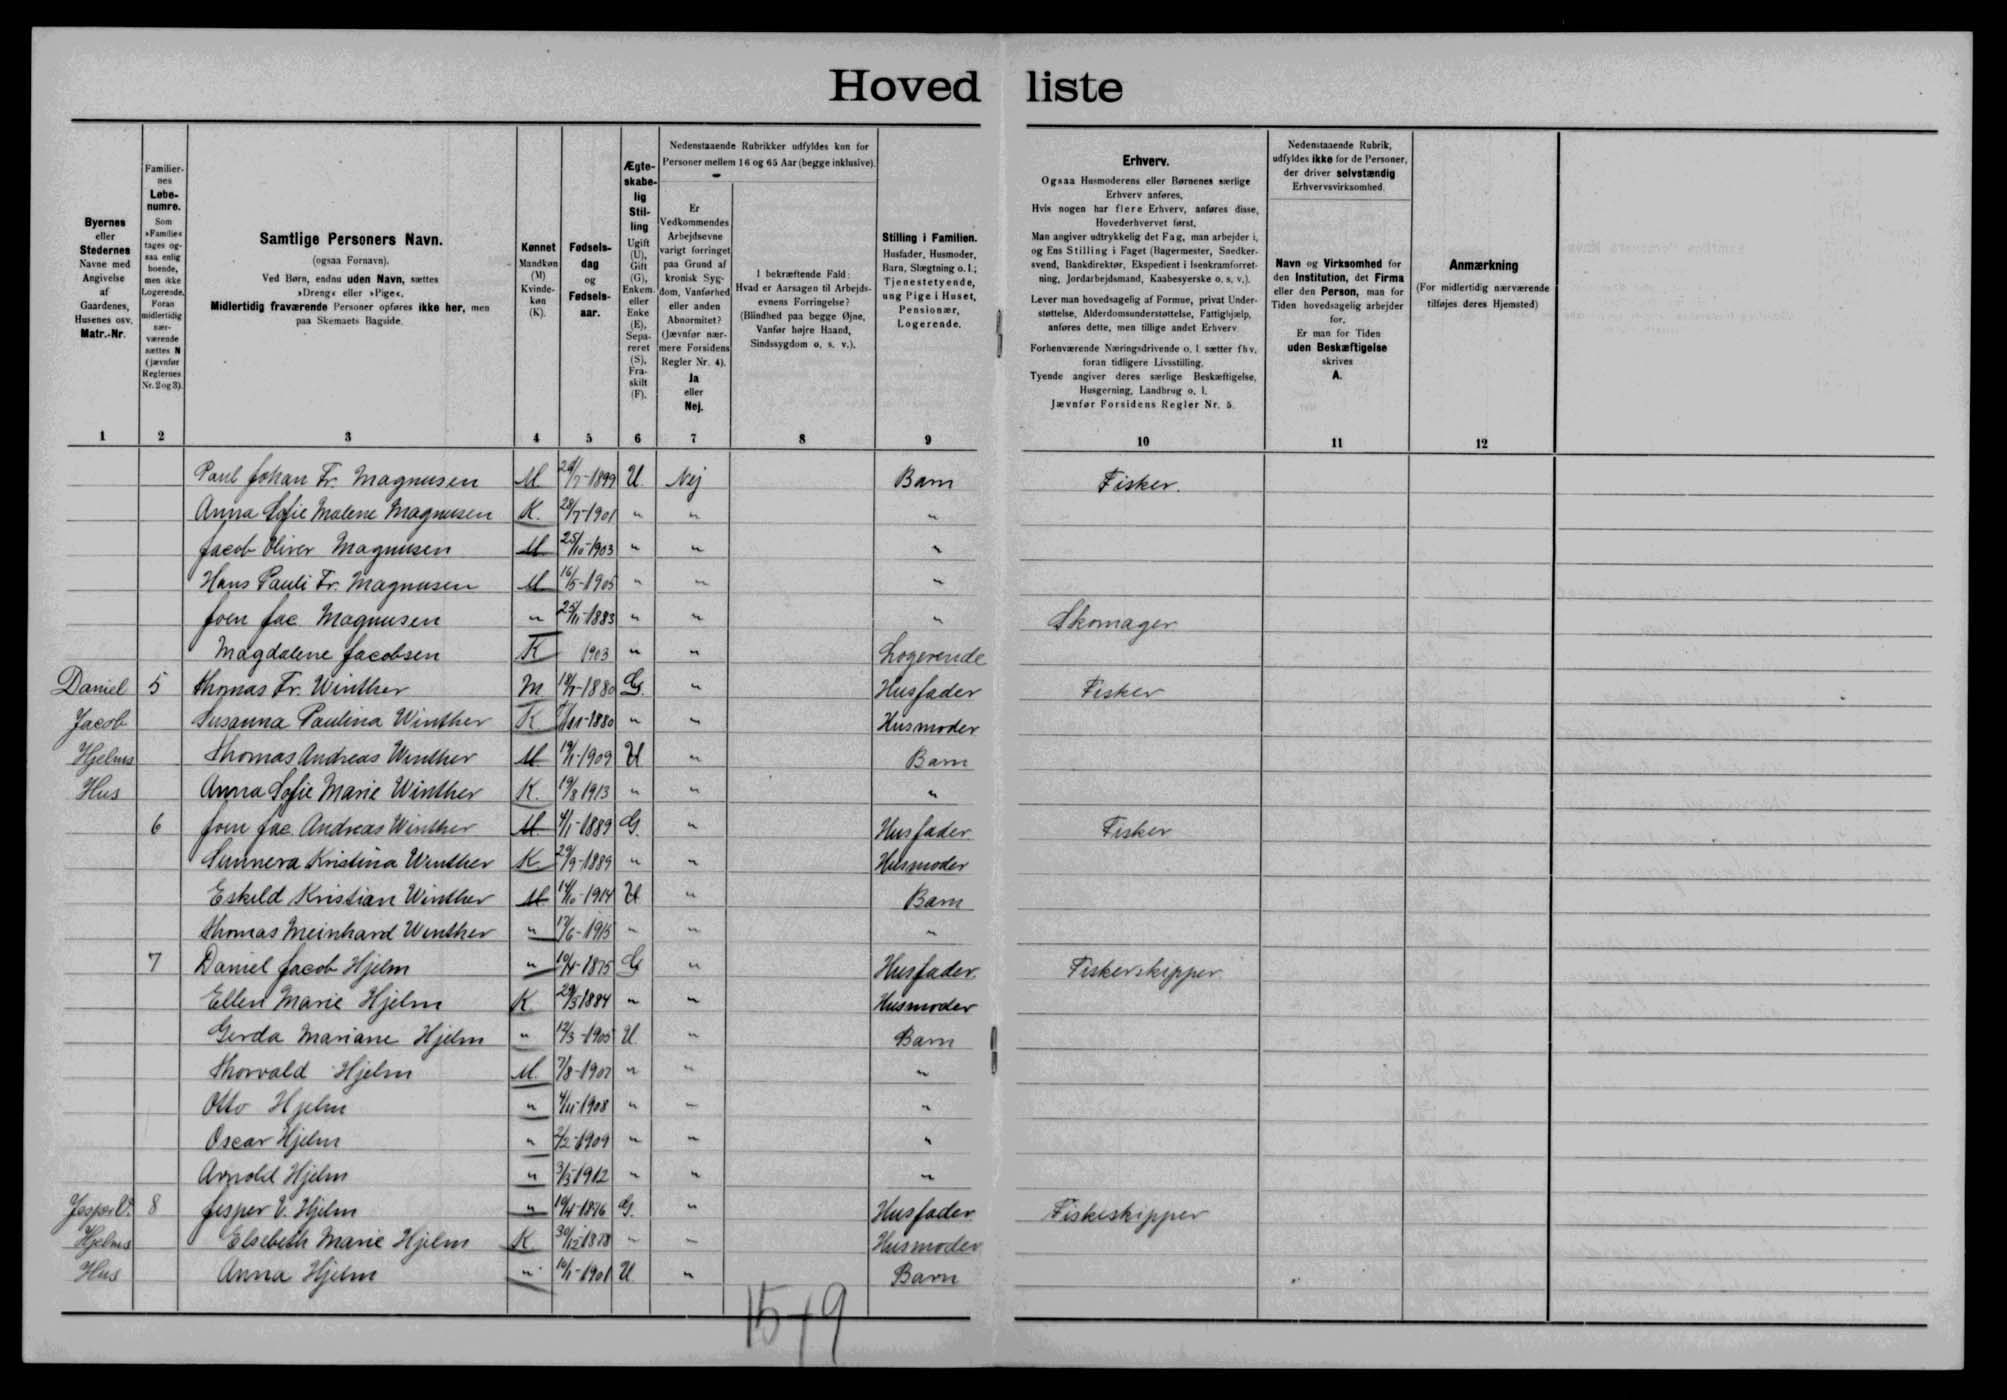 Hovedliste
Byernes eller Stedernes Navne med Angivelse af Gaardenes, Husenes osv. Matr.-Nr.
Familiernes Løbenumre. Som »Familie« tages ogsaa enlig boende, men ikke Logerende. Foran midlertidig nærværende sættes N (jævnfør Reglernes Nr. 2 og 3).
Samtlige Personers Navn.
(ogsaa Fornavn).
Ved Børn, endnu uden Navn, sættes
»Dreng« eller »Pige«.
Midlertidig fraværende Personer opføres ikke her, men
paa Skemaets Bagside.
Kønnet Mandkøn (M) Kvindekøn (K).
Fødselsdag og Fødselsaar.
Ægteskabelig Stilling Ugift (U), Gift (G), Enkem. eller Enke (E), Separeret (S), Fraskilt (F).
Nedenstaaende Rubrikker udfyldes kun for
Personer mellem 16 og 65 Aar (begge inklusive).
Er Vedkommendes Arbejdsevne varigt forringet paa Grund af kronisk Sygdom, Vanførhed eller anden Abnormitet? (Jævnfør nærmere Forsidens Regler Nr. 4). Ja eller Nej.
I bekræftende Fald: Hvad er Aarsagen til Arbejdsevnens Forringelse? (Blindhed paa begge Øjne, Vanfør højre Haand, Sindssygdom o. s. v.).
Stilling i Familien. Husfader, Husmoder, Barn, Slægtning o. l.; Tjenestetyende, ung Pige i Huset, Pensionær, Logerende.
Erhverv.
Ogsaa Husmoderens eller Børnenes særlige
Erhverv anføres.
Hvis nogen har flere Erhverv, anføres disse,
Hovederhvervet først.
Man angiver udtrykkelig det Fag, man arbejder i,
og Ens Stilling i Faget (Bagermester, Snedkersvend, Bankdirektør, Ekspedient i Isenkramforretning, Jordarbejdsmand, Kaabesyerske o. s. v.).
Lever man hovedsagelig af Formue, privat Understøttelse, Alderdomsunderstøttelse, Fattighjælp,
anføres dette, men tillige andet Erhverv
Forhenværende Næringsdrivende o. l. sætter fhv.
foran tidligere Livsstilling.
Tyende angiver deres særlige Beskæftigelse,
Husgerning, Landbrug o. l.
Jævnfør Forsidens Regler Nr. 5.
Nedenstaaende Rubrik,
udfyldes ikke for de Personer,
der driver selvstændig
Erhvervsvirksomhed.
Navn og Virksomhed for
den Institution, det Firma
eller den Person, man for
Tiden hovedsagelig arbejder
for.
Er man for Tiden
uden Beskæftigelse
skrives
A.
Anmærkning
(For midlertidig nærværende
tilføjes deres Hjemsted)
1 2 3 4 5 6 7 8 9 10 11 12
Paul Johan Fr. Magnusen M 1899 U Nej Barn Fisker.
Anna Sofie Malene Magnusen K. 28/7-1901 " " "
Jacob Oliver Magnusen M 25/10-1903 " " "
Hans Pauli Fr. Magnusen M 16/5-1905 " " "
Joen Jac. Magnusen " 25/11-1883 " " " Skomager
Magdalene Jacobsen K 1903 " " Logerende
Daniel 5 Thomas Fr. Winther M 1880 G. " Husfader Fisker
Jacob Susanna Paulina Winther K 1880 " " Husmoder
Hjelms Thomas Andreas Winther M 19/1-1909 U " Barn
Hus Anna Sofie Marie Winther K. 19/8 1913 " " "
6 Joen Jac. Andreas Winther M 4/1-1889 G. " Husfader Fisker
Sunneva Kristina Winther K 29/9-1889 " " Husmoder
Eskild Kristian Winther M 14/10-1914 U " Barn
Thomas Meinhard Winther " 17/6-1915 " " "
7 Daniel Jacob Hjelm " 10/4-1875 G " Husfader Fiskerskipper
Ellen Marie Hjelm K 29/5 1884 " " Husmoder
Gerda Mariane Hjelm " 12/3-1905 U " Barn
Thorvald Hjelm M. 7/8-1907 " " "
Otto Hjelm " 4/11-1908 " " "
Oscar Hjelm " 2/2-1909 " " "
Arnold Hjelm " 3/5 1912 " " "
Jesper V. 8 Jesper V. Hjelm " 19/4-1876 G. " Husfader Fiskeskipper
Hjelms Elsebeth Marie Hjelm K 30/12 1878 " " Husmoder
Hus Anna Hjelm " 16/1-1901 U " Barn
15+9